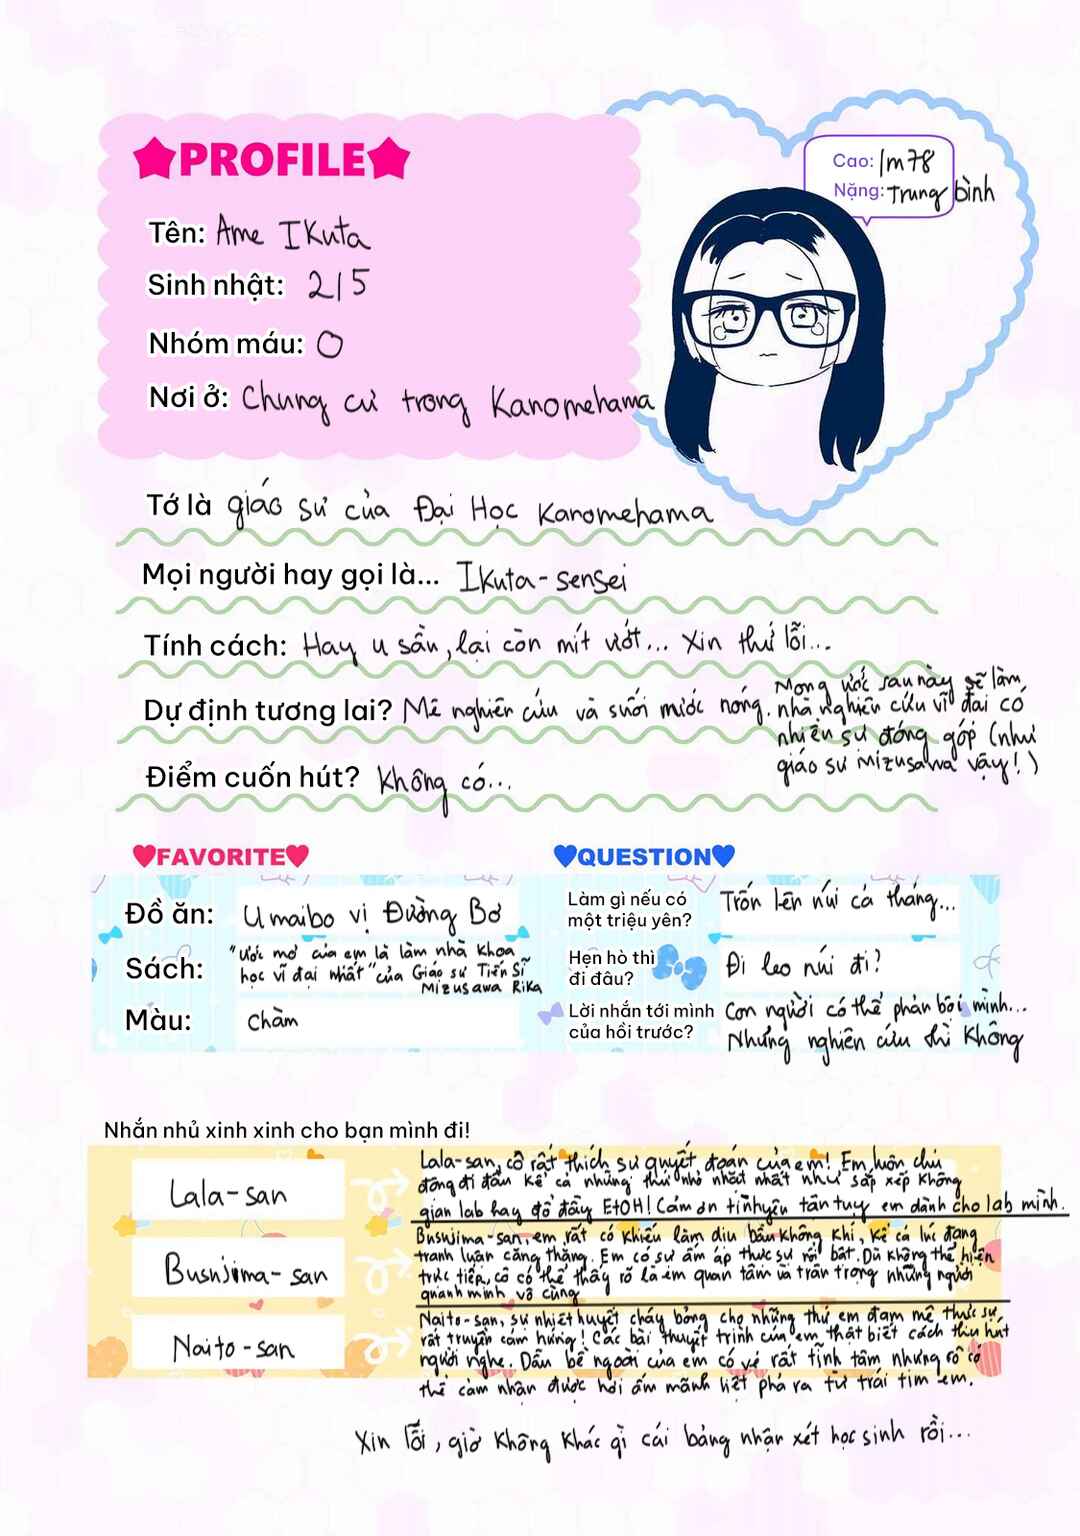 PROFILE
Cao: 1m78
Nặng: Trung bình
Tên: Ame Ikuta
Sinh nhật: 2/5
Nhóm máu: O
Nơi ở: Chung cư trong Kanomehama
Tớ là giáo sư của Đại Học Kanomehama
Mọi người hay gọi là... Ikuta-sensei
Tính cách: Hay u sầu, lại còn mít ướt... Xin thứ lỗi...
Dự định tương lai? Mê nghiên cứu và suối nước nóng. Mong ước sau này sẽ làm
nhà nghiên cứu vĩ đại có
nhiều sự đóng góp (như
giáo sư Mizusawa vậy!)
Điểm cuốn hút? Không có...
FAVORITE
Đồ ăn: Umaibo vị Đường Bơ
Sách: "Ước mơ của em là làm nhà khoa
học vĩ đại nhất" của Giáo sư Tiến Sĩ
Mizusawa Rika
Màu: Chàm
QUESTION
Làm gì nếu có
một triệu yên? Trốn lên núi cả tháng...
Hẹn hò thì
đi đâu? Đi leo núi đi?
Lời nhắn tới mình
của hồi trước? Con người có thể phản bội mình...
Nhưng nghiên cứu thì không
Nhắn nhủ xinh xinh cho bạn mình đi!
Lala-san
Lala-san, cô rất thích sự quyết đoán của em! Em luôn chủ
động đi đầu kể cả những thứ nhỏ nhặt nhất như sắp xếp không
gian lab hay đổ đầy EtOH! Cảm ơn tình yêu tận tụy em dành cho lab mình.
Busujima-san
Busujima-san, em rất có khiếu làm dịu bầu không khí, kể cả lúc đang
tranh luận căng thẳng. Em có sự ấm áp thực sự nổi bật. Dù không thể hiện
trực tiếp, cô có thể thấy rõ là em quan tâm và trân trọng những người
quanh mình vô cùng
Naito-san
Naito-san, sự nhiệt huyết cháy bỏng cho những thứ em đam mê thực sự
rất truyền cảm hứng! Các bài thuyết trình của em thật biết cách thu hút
người nghe. Dẫu bề ngoài của em có vẻ rất tĩnh tâm nhưng cô có
thể cảm nhận được hơi ấm mãnh liệt phả ra từ trái tim em.
Xin lỗi, giờ không khác gì cái bảng nhận xét học sinh rồi...